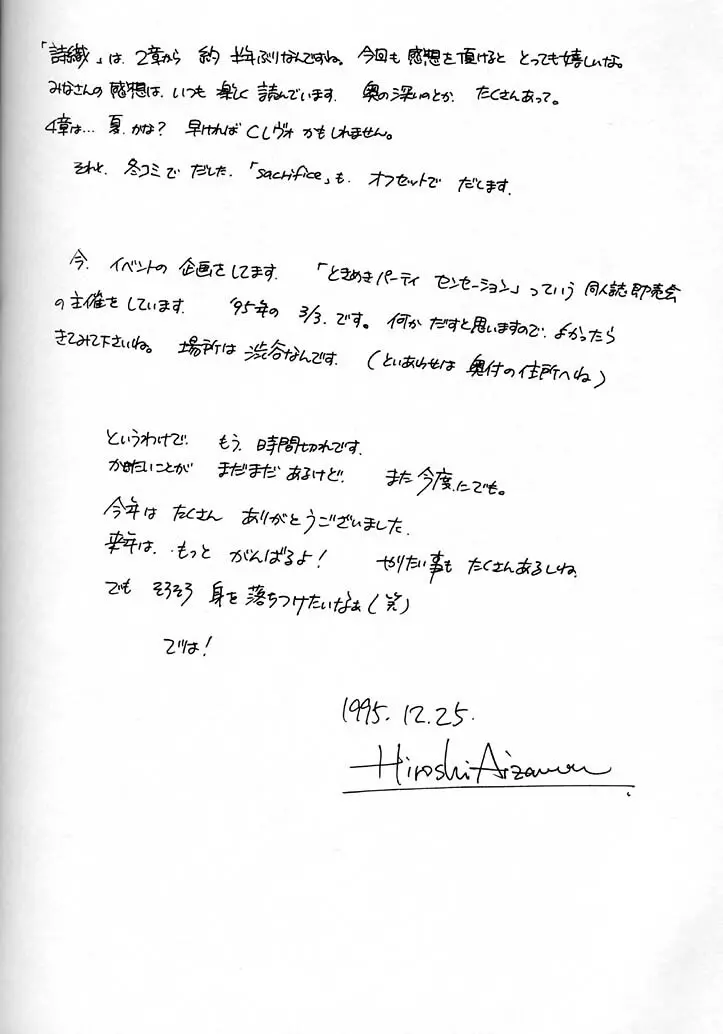 「詩織」は、2章から 約 半年ぶりなんですね。今回も 感想を頂けると とっても嬉しいな。
みなさんの 感想は、いつも 楽しく 読んでいます. 奥の深いのとか、たくさんあって。
4章は… 夏.かな? 早ければ Cレヴォ かもしれません。
それと、冬コミで だした.「sacrifice」も、オフセットで だします.
今、イベントの 企画をしてます. 「ときめきパーティ センセーション」っていう 同人誌即売会
の主催をしています. '95年の 3/3.です。何か だすと思いますので、よかったら
きてみて下さいね。場所は 渋谷なんです. (といあわせは 奥付の住所へね)
というわけで. もう.時間切れです.
かきたいことが まだまだ あるけど. また 今度.にでも。
今年は たくさん ありがとうございました.
来年は.もっと がんばるよ! やりたい事も たくさんあるしね.
でも そろそろ 身を 落ちつけたいなぁ(笑)
では!
1995.12.25.
Hiroshi Aizawa